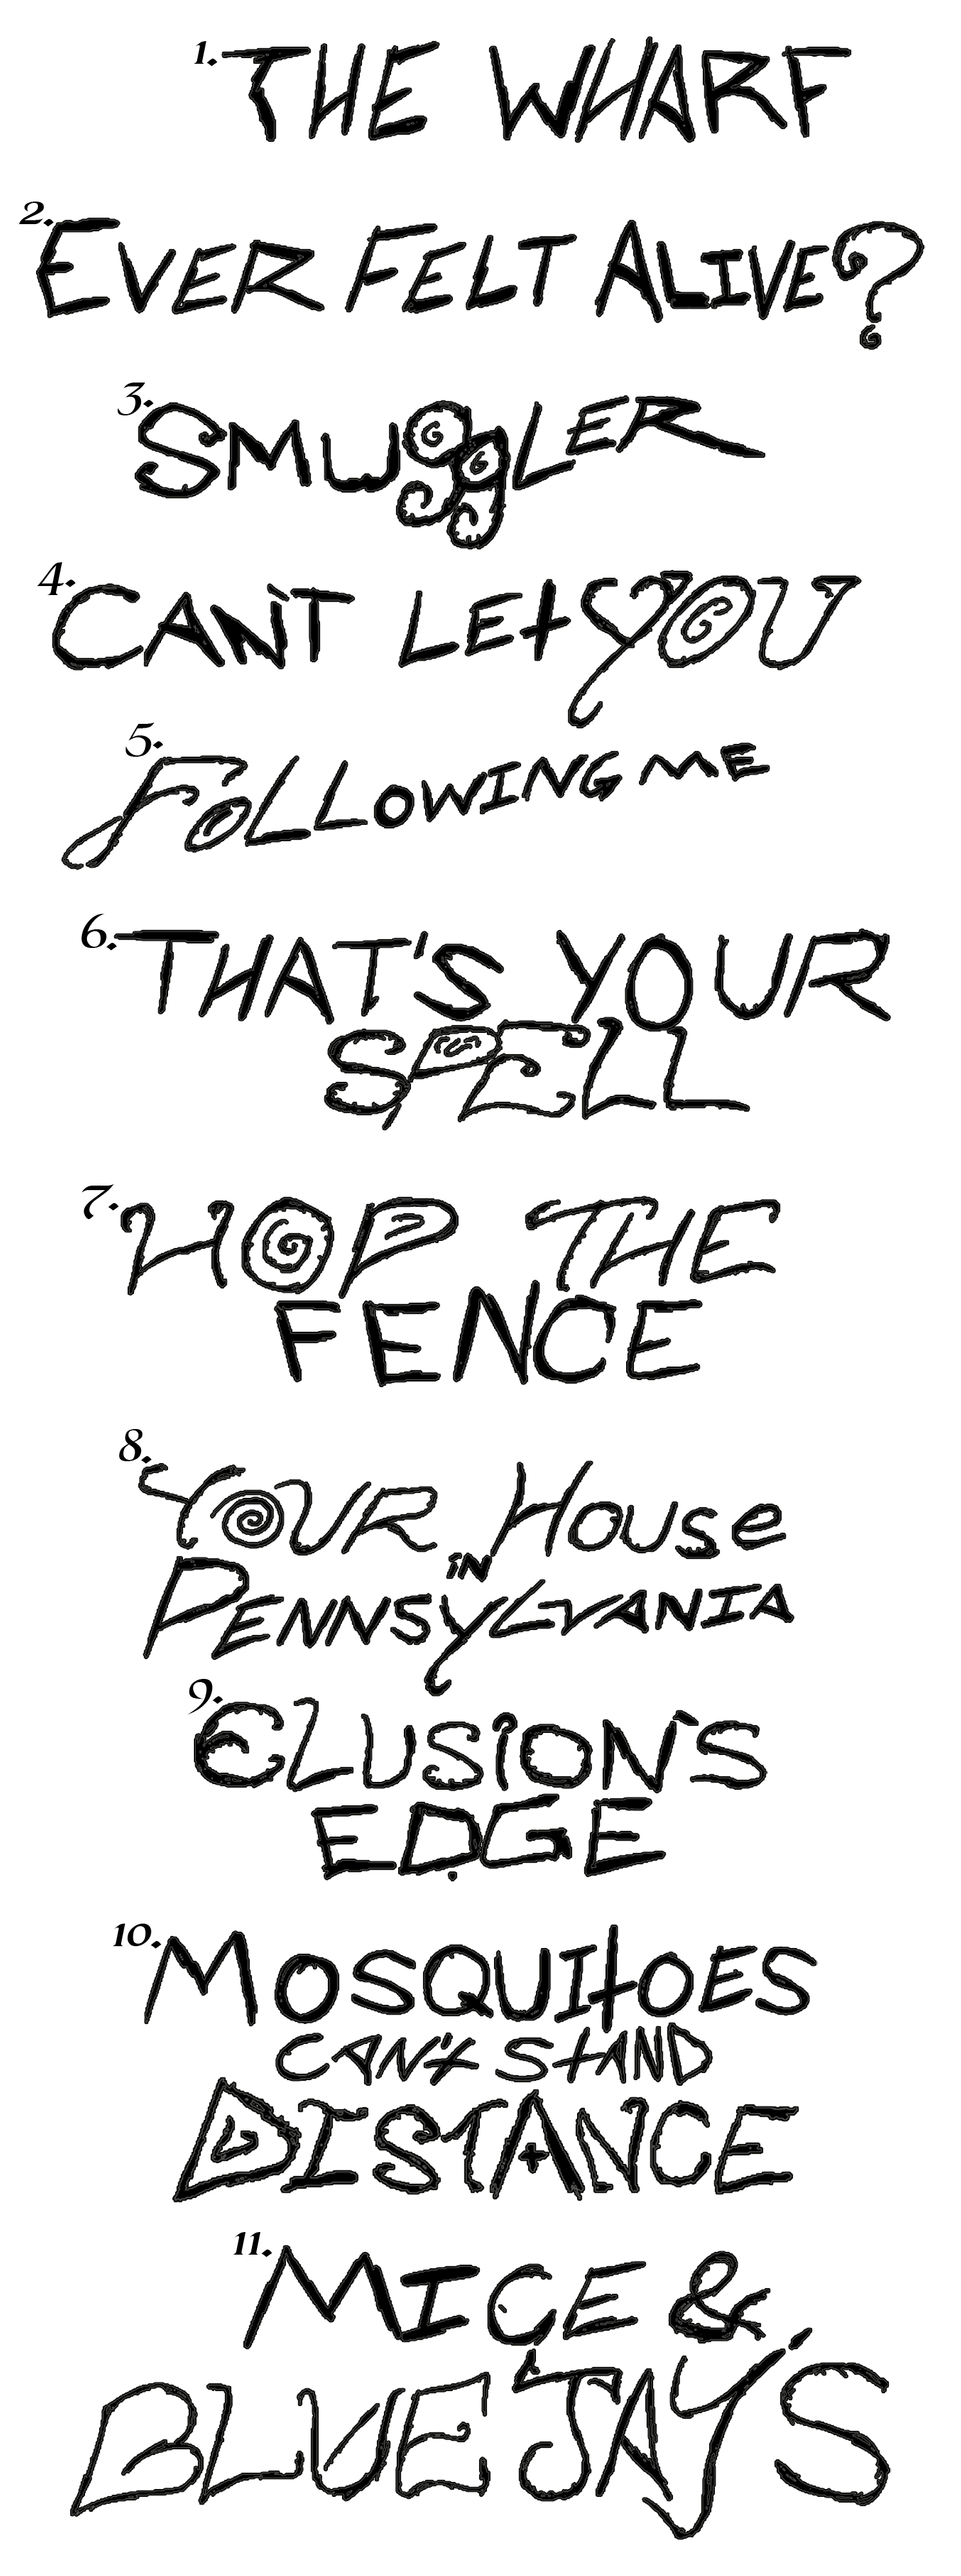 1. THE WHARF
2. EVER FELT ALIVE?
3. SMUggLER
4. CAN'T LEt YOU
5. FOLLOWING ME
6. THAT'S YOUR
SPELL
7. HOP THE
FENCE
8. YOUR HOUSe
iN
PENNSYLVANIA
9. ELUSiON'S
EDGE
10. MOSQUItOES
CAN't StAND
DISTANCE
11. MICE &
BLUE JAY'S